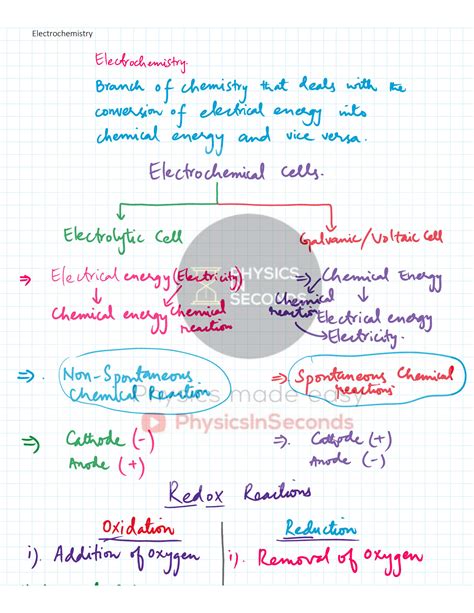 Electrochemistry
Electrochemistry
Branch of chemistry that deals with the
conversion of electrical energy into
chemical energy and vice versa.
Electrochemical Cells.
Electrolytic Cell
Galvanic/Voltaic Cell
⇒ Electrical energy (Electricity)
↓
Chemical energy Chemical
reaction
⇒ Chemical Energy
Chemical
reaction ↓
Electrical energy
→ Electricity.
PHYSICS
SECONDS
⇒. Non-Spontaneous
Chemical Reaction
⇒ Spontaneous Chemical
reactions
Physics made easy
PhysicsInSeconds
⇒ Cathode (-)
Anode (+)
⇒. Cathode (+)
Anode (-)
Redox Reactions
Oxidation
i). Addition of oxygen
Reduction
i). Removal of oxygen